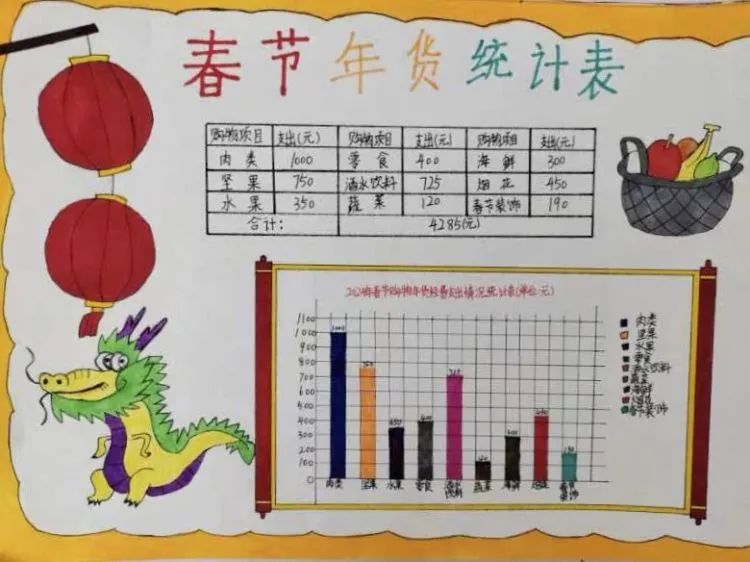 春节年货统计表
购物项目 支出(元) 购物项目 支出(元) 购物项目 支出(元)
肉类 1000 零食 400 海鲜 300
坚果 750 酒水饮料 725 烟花 450
水果 350 蔬菜 120 春节装饰 190
合计: 4285(元)
2024年春节购物年货经费支出情况统计表(单位:元)
1100
1000
900
800
700
600
500
400
300
200
100
0
1000 750 350 400 725 120 300 450 190
肉类 坚果 水果 零食 酒水饮料 蔬菜 海鲜 烟花 春节装饰
肉类
坚果
水果
零食
酒水饮料
蔬菜
海鲜
烟花
春节装饰